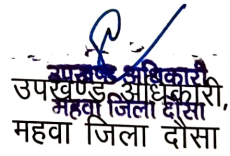 उपखण्ड अधिकारी
उपखण्ड अधिकारी,
महवा जिला दौसा
महवा जिला दौसा